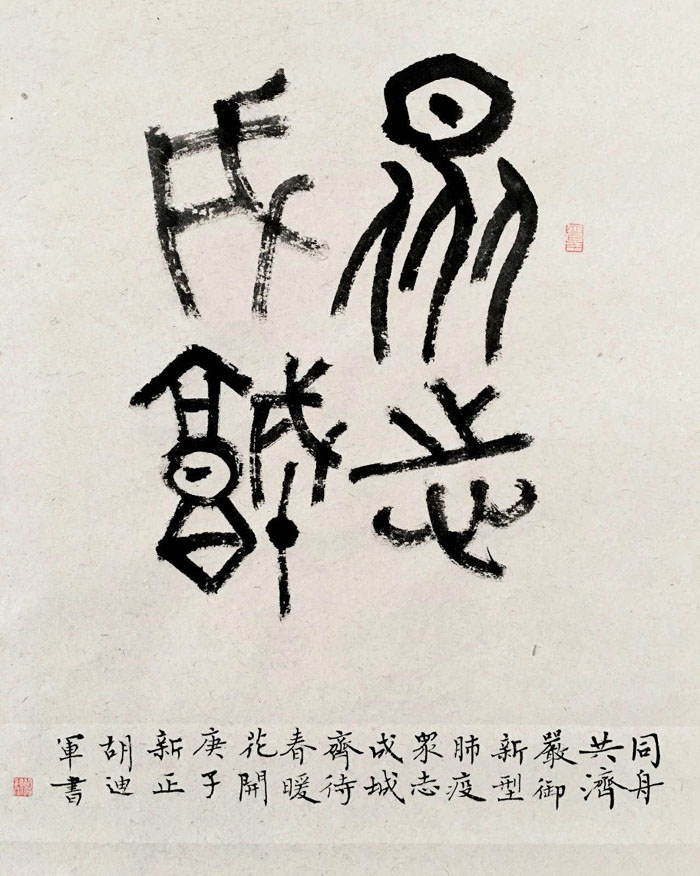 眾志
成城
同舟
共濟
嚴御
新型
肺疫
眾志
成城
齊待
春暖
花開
庚子
新正
胡迪
軍書